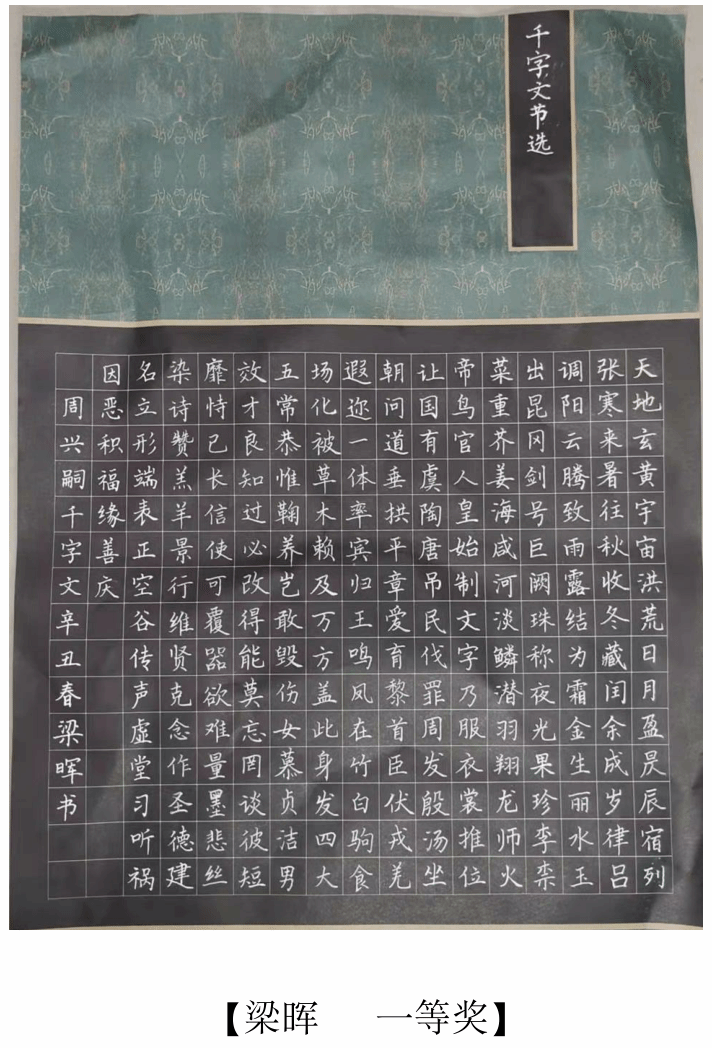 千字文节选
天地玄黄宇宙洪荒日月盈昃辰宿列
张寒来暑往秋收冬藏闰余成岁律吕
调阳云腾致雨露结为霜金生丽水玉
出昆冈剑号巨阙珠称夜光果珍李栾
菜重芥姜海咸河淡鳞潜羽翔龙师火
帝鸟官人皇始制文字乃服衣裳推位
让国有虞陶唐吊民伐罪周发殷汤坐
朝问道垂拱平章爱育黎首臣伏戎羌
遐迩一体率宾归王鸣凤在竹白驹食
场化被草木赖及万方盖此身发四大
五常恭惟鞠养岂敢毁伤女慕贞洁男
效才良知过必改得能莫忘罔谈彼短
靡恃己长信使可覆器欲难量墨悲丝
染诗赞羔羊景行维贤克念作圣德建
名立形端表正空谷传声虚堂习听祸
因恶积福缘善庆
周兴嗣千字文辛丑春梁晖书
【梁晖 一等奖】